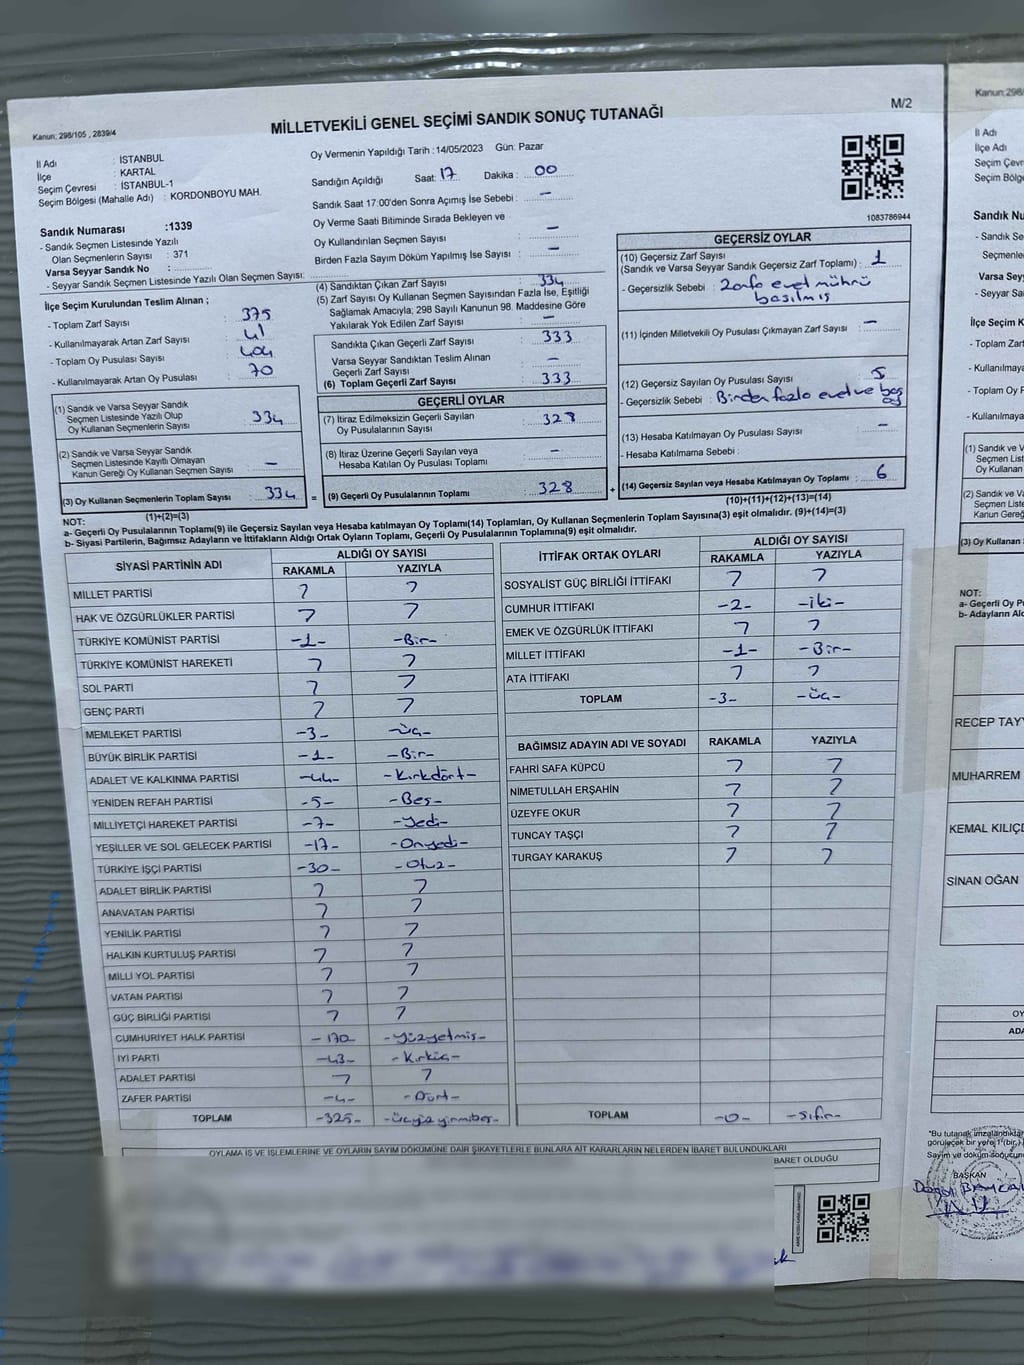 Kanun; 298/105 , 2839/4
MİLLETVEKİLİ GENEL SEÇİMİ SANDIK SONUÇ TUTANAĞI
M/2
İl Adı : İSTANBUL
İlçe : KARTAL
Seçim Çevresi : İSTANBUL-1
Seçim Bölgesi (Mahalle Adı) : KORDONBOYU MAH.
Oy Vermenin Yapıldığı Tarih : 14/05/2023 Gün: Pazar
Sandığın Açıldığı Saat: 17 Dakika : 00
Sandık Saat 17:00'den Sonra Açımış İse Sebebi : -
Oy Verme Saati Bitiminde Sırada Bekleyen ve
Oy Kullandırılan Seçmen Sayısı : -
Birden Fazla Sayım Döküm Yapılmış İse Sayısı : -
1083786944
Sandık Numarası :1339
- Sandık Seçmen Listesinde Yazılı
Olan Seçmenlerin Sayısı : 371
Varsa Seyyar Sandık No :
- Seyyar Sandık Seçmen Listesinde Yazılı Olan Seçmen Sayısı:
İlçe Seçim Kurulundan Teslim Alınan ;
- Toplam Zarf Sayısı : 375
- Kullanılmayarak Artan Zarf Sayısı : 41
- Toplam Oy Pusulası Sayısı : 404
- Kullanılmayarak Artan Oy Pusulası : 70
(1) Sandık ve Varsa Seyyar Sandık
Seçmen Listesinde Yazılı Olup
Oy Kullanan Seçmenlerin Sayısı : 334
(2) Sandık ve Varsa Seyyar Sandık
Seçmen Listesinde Kayıtlı Olmayan
Kanun Gereği Oy Kullanan Seçmen Sayısı : -
(3) Oy Kullanan Seçmenlerin Toplam Sayısı : 334 =
(1)+(2)=(3)
(4) Sandıktan Çıkan Zarf Sayısı : 334
(5) Zarf Sayısı Oy Kullanan Seçmen Sayısından Fazla İse, Eşitliği
Sağlamak Amacıyla; 298 Sayılı Kanunun 98. Maddesine Göre
Yakılarak Yok Edilen Zarf Sayısı : -
Sandıkta Çıkan Geçerli Zarf Sayısı : 333
Varsa Seyyar Sandıktan Teslim Alınan
Geçerli Zarf Sayısı : -
(6) Toplam Geçerli Zarf Sayısı : 333
GEÇERLİ OYLAR
(7) İtiraz Edilmeksizin Geçerli Sayılan
Oy Pusulalarının Sayısı : 328
(8) İtiraz Üzerine Geçerli Sayılan veya
Hesaba Katılan Oy Pusulası Toplamı : -
(9) Geçerli Oy Pusulalarının Toplamı : 328 +
GEÇERSİZ OYLAR
(10) Geçersiz Zarf Sayısı
(Sandık ve Varsa Seyyar Sandık Geçersiz Zarf Toplamı) : 1
- Geçersizlik Sebebi : Zarfa evet mührü
basılmış
(11) İçinden Milletvekili Oy Pusulası Çıkmayan Zarf Sayısı : -
(12) Geçersiz Sayılan Oy Pusulası Sayısı : 5
- Geçersizlik Sebebi : Birden fazla evet ve boş
oy
(13) Hesaba Katılmayan Oy Pusulası Sayısı : -
- Hesaba Katılmama Sebebi :
(14) Geçersiz Sayılan veya Hesaba Katılmayan Oy Toplamı : 6
(10)+(11)+(12)+(13)=(14)
NOT:
a- Geçerli Oy Pusulalarının Toplamı(9) ile Geçersiz Sayılan veya Hesaba katılmayan Oy Toplamı(14) Toplamları, Oy Kullanan Seçmenlerin Toplam Sayısına(3) eşit olmalıdır. (9)+(14)=(3)
b- Siyasi Partilerin, Bağımsız Adayların ve İttifakların Aldığı Ortak Oyların Toplamı, Geçerli Oy Pusulalarının Toplamına(9) eşit olmalıdır.
SİYASİ PARTİNİN ADI ALDIĞI OY SAYISI
RAKAMLA YAZIYLA
MİLLET PARTİSİ
HAK VE ÖZGÜRLÜKLER PARTİSİ
TÜRKİYE KOMÜNİST PARTİSİ -1- -Bir-
TÜRKİYE KOMÜNİST HAREKETİ
SOL PARTİ
GENÇ PARTİ
MEMLEKET PARTİSİ -3- -üç-
BÜYÜK BİRLİK PARTİSİ -1- -Bir-
ADALET VE KALKINMA PARTİSİ -44- -Kırkdört-
YENİDEN REFAH PARTİSİ -5- -Beş-
MİLLİYETÇİ HAREKET PARTİSİ -7- -Yedi-
YEŞİLLER VE SOL GELECEK PARTİSİ -17- -Onyedi-
TÜRKİYE İŞÇİ PARTİSİ -30- -Otuz-
ADALET BİRLİK PARTİSİ
ANAVATAN PARTİSİ
YENİLİK PARTİSİ
HALKIN KURTULUŞ PARTİSİ
MİLLİ YOL PARTİSİ
VATAN PARTİSİ
GÜÇ BİRLİĞİ PARTİSİ
CUMHURİYET HALK PARTİSİ -170- -yüzyetmiş-
İYİ PARTİ -43- -Kırküç-
ADALET PARTİSİ
ZAFER PARTİSİ -4- -Dört-
TOPLAM -325- -üçyüzyirmibeş-
İTTİFAK ORTAK OYLARI ALDIĞI OY SAYISI
RAKAMLA YAZIYLA
SOSYALİST GÜÇ BİRLİĞİ İTTİFAKI
CUMHUR İTTİFAKI -2- -iki-
EMEK VE ÖZGÜRLÜK İTTİFAKI
MİLLET İTTİFAKI -1- -Bir-
ATA İTTİFAKI
TOPLAM -3- -üç-
BAĞIMSIZ ADAYIN ADI VE SOYADI RAKAMLA YAZIYLA
FAHRİ SAFA KÜPCÜ
NİMETULLAH ERŞAHİN
ÜZEYFE OKUR
TUNCAY TAŞÇI
TURGAY KARAKUŞ
TOPLAM -0- -sıfır-
OYLAMA İŞ VE İŞLEMLERİNE VE OYLARIN SAYIM DÖKÜMÜNE DAİR ŞİKAYETLERLE BUNLARA AİT KARARLARIN NELERDEN İBARET BULUNDUKLARI
BARET OLDUĞU
Kanun; 298/
İl Adı
İlçe Adı
Seçim Çevr
Seçim Bölg
Sandık Nu
- Sandık Se
Seçmenle
Varsa Sey
- Seyyar Sa
İlçe Seçim
- Toplam Zar
- Kullanılma
- Toplam Oy
- Kullanılma
(1) Sandık v
Seçmen List
Oy Kullanan
(2) Sandık ve
Seçmen List
Kanun Gere
(3) Oy Kullanan
NOT:
a- Geçerli Oy Pu
b- Adayların Ald
RECEP TAYY
MUHARREM
KEMAL KILIÇD
SİNAN OĞAN
OY
ADA
"Bu tutanak imzalandıkta
görülecek bir yere 1 (bir)
Sayım ve döküm sonucun
BAŞKAN